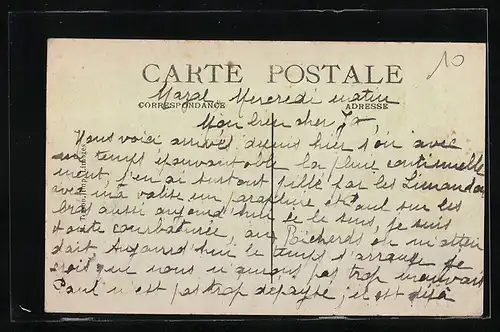 10
CARTE POSTALE
CORRESPONDANCE
ADRESSE
Mazal Mercredi matin
Mon bien cher
Nous voici arrivés depuis hier soir avec
un temps épouvantable la pluie continuelle
ment j'en ai surtout pillé par les
avec ma valise un parapluie et Paul sur les
bras aussi aujourd'hui je le suis, je suis
toute courbaturée, au Richerds on m'atten
dait Aujourd'hui le temps s'arrange je
crois que nous n'aurons pas trop mauvais
Paul n'est pas trop dépaysé, il est déjà